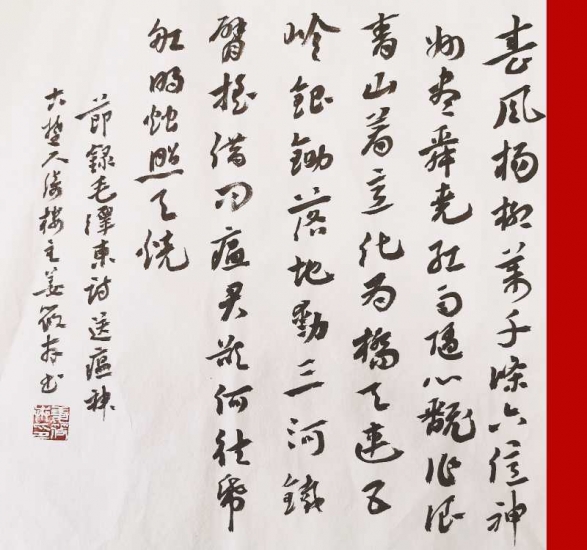 春風楊柳萬千條六億神
州盡舜堯紅雨隨心翻作浪
青山着意化為橋天連五
岭銀鋤落地動三河鐵
臂搖借問瘟君欲何往帋
船明燭照天燒
節錄毛澤東詩送瘟神
楚天海樓主姜書